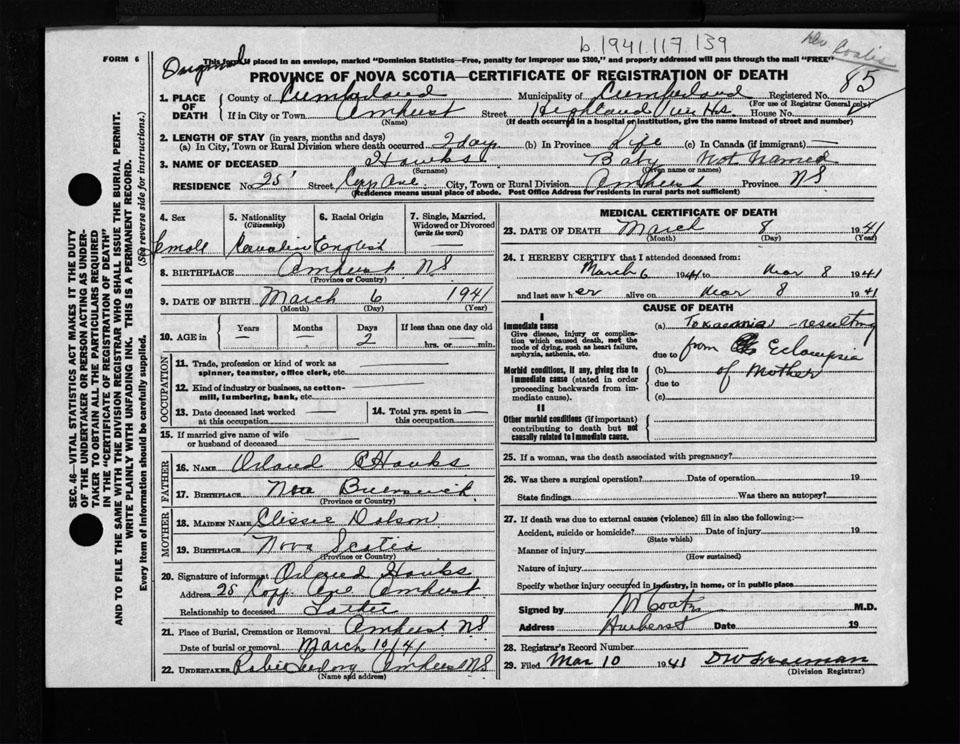 b.1941.117.139
Original
FORM 6
This form if placed in an envelope, marked "Dominion Statistics—Free, penalty for improper use $300," and properly addressed will pass through the mail "FREE"
PROVINCE OF NOVA SCOTIA—CERTIFICATE OF REGISTRATION OF DEATH
85
1. PLACE OF DEATH
County of Cumberland Municipality of Cumberland Registered No.
(For use of Registrar General only)
If in City or Town Amherst Street Highland View Hs. House No.
(Name) (If death occurred in a hospital or institution, give the name instead of street and number)
2. LENGTH OF STAY (in years, months and days)
(a) In City, Town or Rural Division where death occurred 2 days (b) In Province Life (c) In Canada (if immigrant) —
3. NAME OF DECEASED Hawks Baby Not Named
(Surname) (Given name or names)
RESIDENCE No. 25 Street Copp Ave. City, Town or Rural Division Amherst Province NS
(Residence means usual place of abode. Post Office Address for residents in rural parts not sufficient)
SEC. 46—VITAL STATISTICS ACT MAKES IT THE DUTY
OF THE UNDERTAKER OR PERSON ACTING AS UNDER-
TAKER TO OBTAIN ALL THE PARTICULARS REQUIRED
IN THE "CERTIFICATE OF REGISTRATION OF DEATH"
AND TO FILE THE SAME WITH THE DIVISION REGISTRAR WHO SHALL ISSUE THE BURIAL PERMIT.
WRITE PLAINLY WITH UNFADING INK. THIS IS A PERMANENT RECORD.
Every item of Information should be carefully supplied.
(See reverse side for instructions.)
4. Sex 5. Nationality 6. Racial Origin 7. Single, Married,
(Citizenship) Widowed or Divorced
(write the word)
Canadian English —
8. BIRTHPLACE Amherst NS
(Province or Country)
9. DATE OF BIRTH March 6 1941
(Month) (Day) (Year)
10. AGE in Years Months Days If less than one day old
— — 2 hrs. or — min.
OCCUPATION
11. Trade, profession or kind of work as
spinner, teamster, office clerk, etc. —
12. Kind of industry or business, as cotton-
mill, lumbering, bank, etc. —
13. Date deceased last worked
at this occupation —
14. Total yrs. spent in
this occupation —
15. If married give name of wife
or husband of deceased —
FATHER
16. NAME Hawks
17. BIRTHPLACE New Brunswick
(Province or Country)
MOTHER
18. MAIDEN NAME Dobson
19. BIRTHPLACE Nova Scotia
(Province or Country)
20. Signature of informant Hawks
Address 25 Copp Ave Amherst
Relationship to deceased Father
21. Place of Burial, Cremation or Removal Amherst NS
Date of burial or removal March 10/41
22. UNDERTAKER Amherst NS
(Name and address)
MEDICAL CERTIFICATE OF DEATH
23. DATE OF DEATH March 8 1941
(Month) (Day) (Year)
24. I HEREBY CERTIFY that I attended deceased from:
March 6 1941 to Mar 8 1941
and last saw her alive on Mar 8 1941
CAUSE OF DEATH
I
Immediate cause
Give disease, injury or complica-
tion which caused death, not the
mode of dying, such as heart failure,
asphyxia, asthenia, etc.
(a) Toxaemia - resulting
due to from Eclampsia
Morbid conditions, if any, giving rise to
immediate cause (stated in order
proceeding backwards from im-
mediate cause).
(b) of Mother
due to
(c)
II
Other morbid conditions (if important)
contributing to death but not
causally related to immediate cause.
25. If a woman, was the death associated with pregnancy?
26. Was there a surgical operation? Date of operation 19
State findings Was there an autopsy?
27. If death was due to external causes (violence) fill in also the following:—
Accident, suicide or homicide? Date of injury 19
(State which)
Manner of injury
(How sustained)
Nature of injury
Specify whether injury occurred in industry, in home, or in public place
Signed by M.D.
Address Amherst Date 19
28. Registrar's Record Number
29. Filed Mar 10 1941
(Division Registrar)